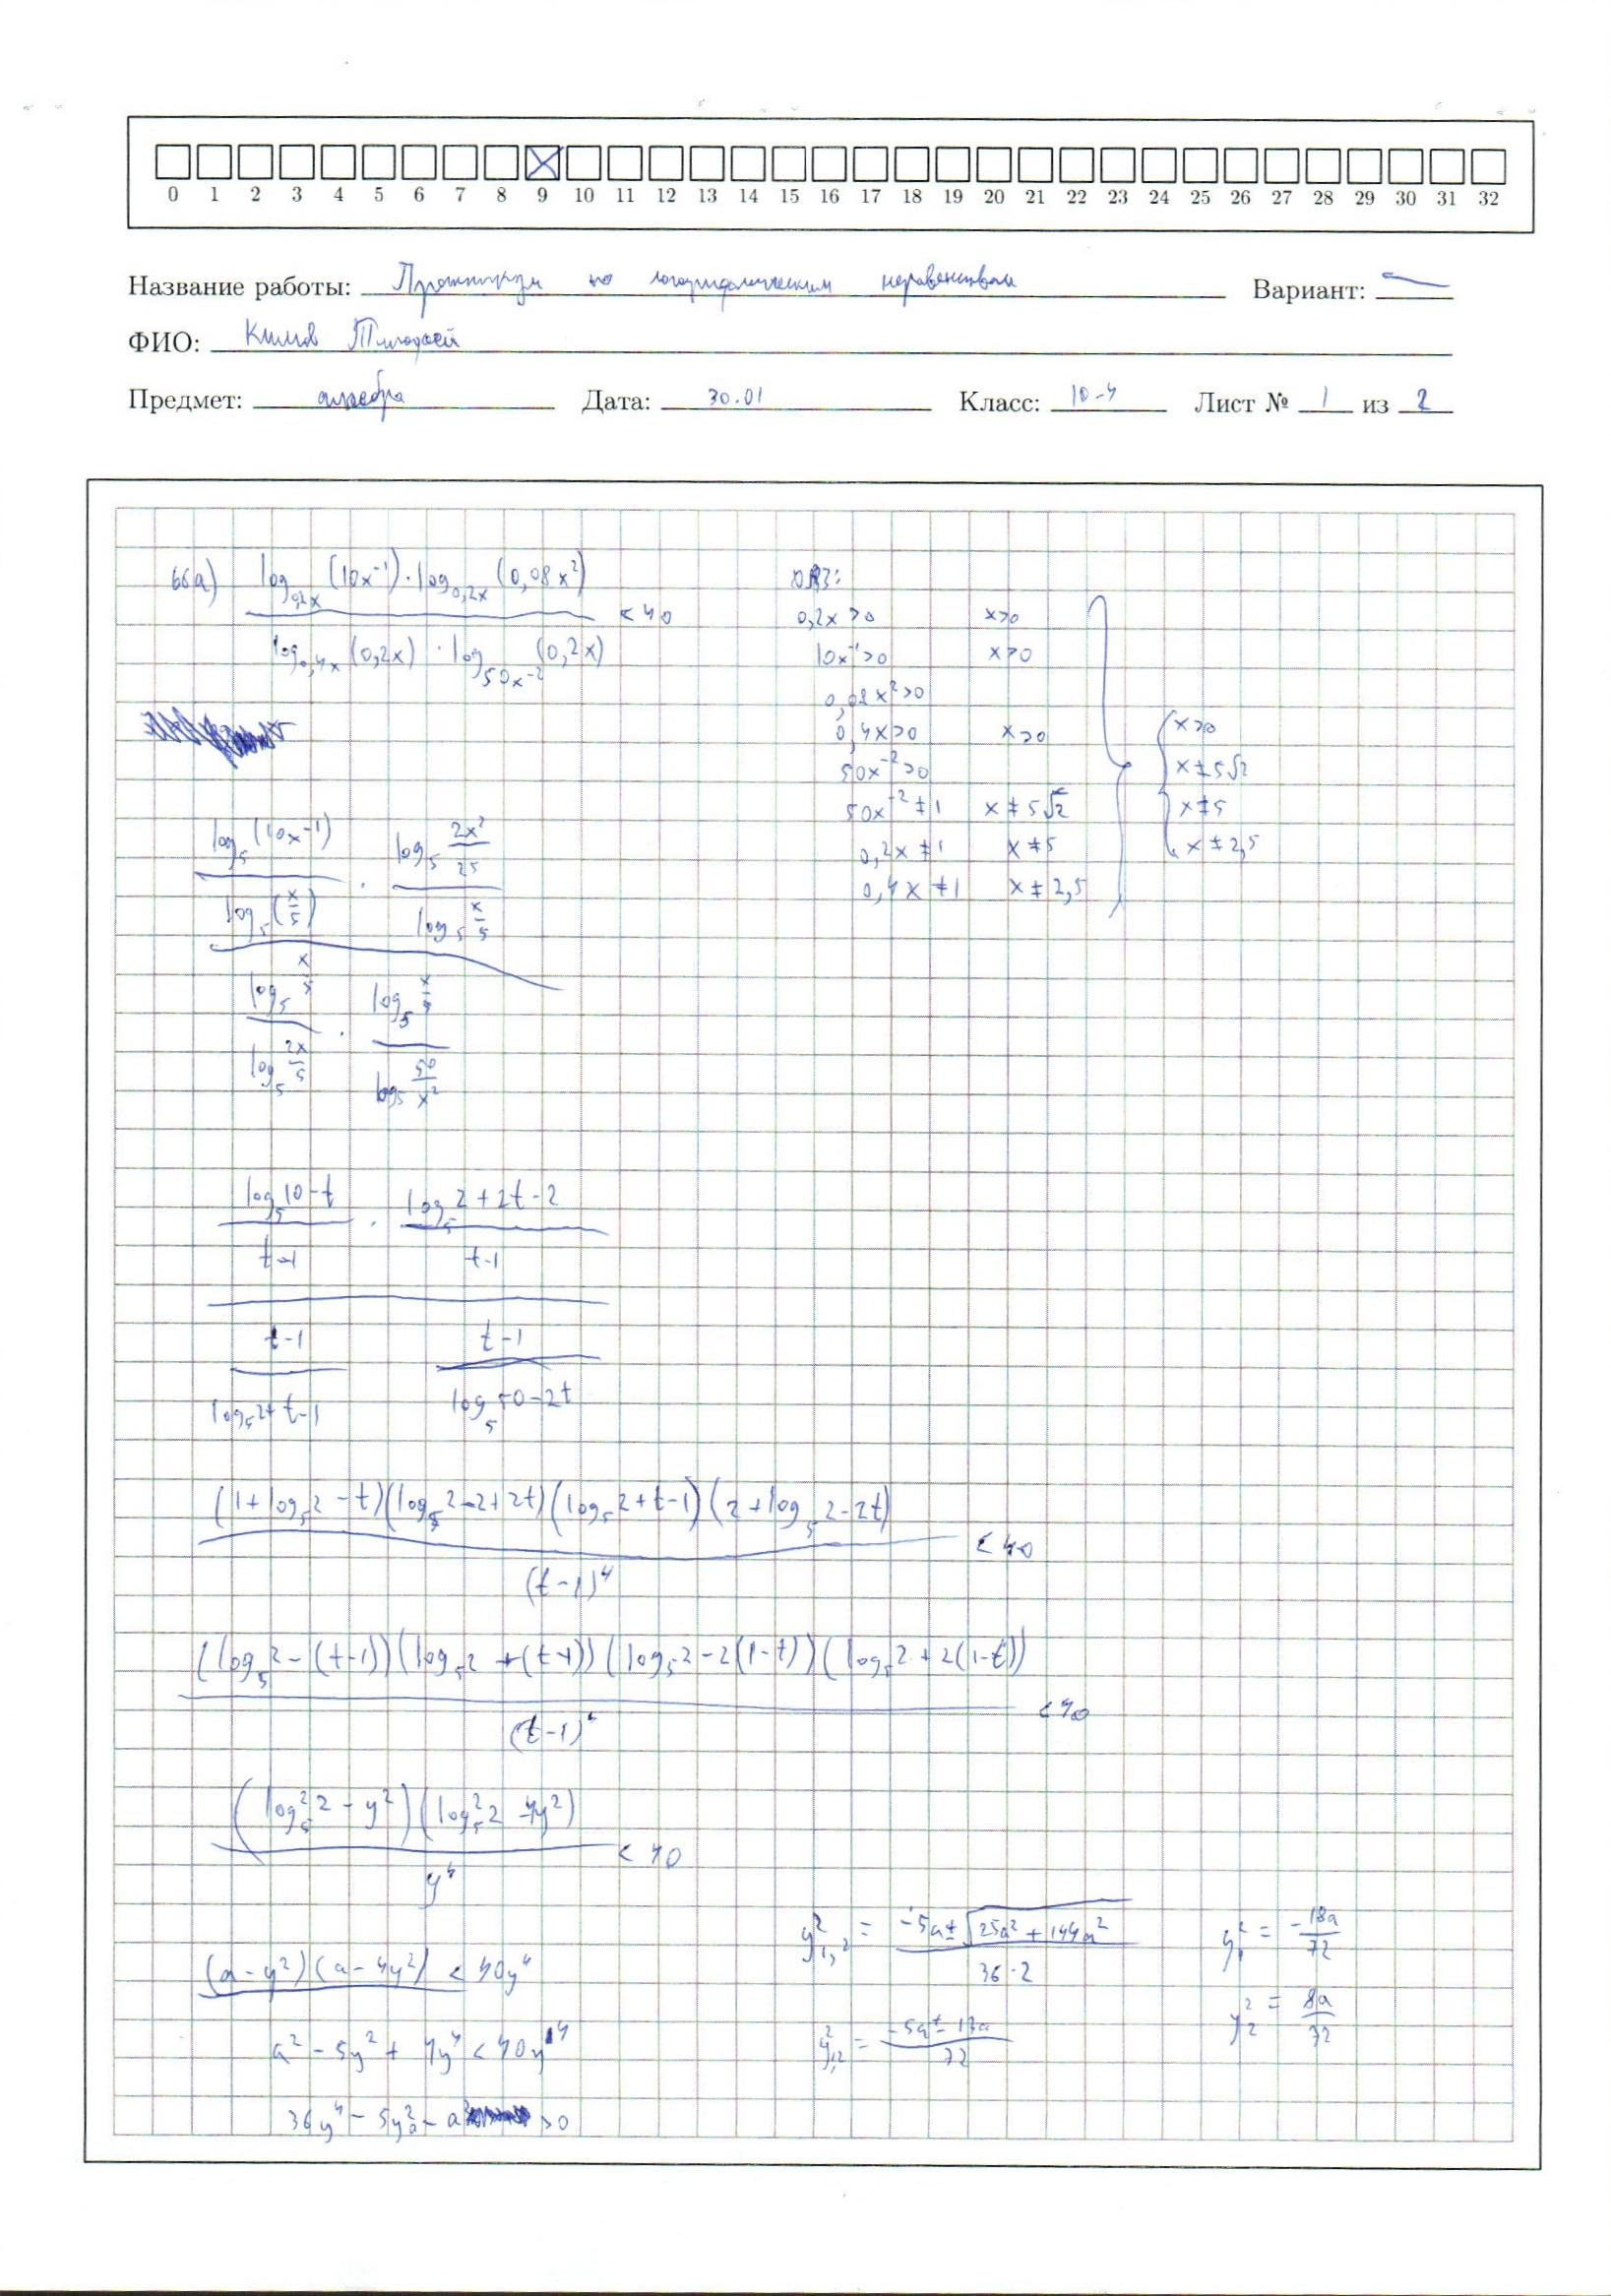 0 1 2 3 4 5 6 7 8 9 10 11 12 13 14 15 16 17 18 19 20 21 22 23 24 25 26 27 28 29 30 31 32
Название работы: Практикум по логарифмическим неравенствам Вариант: —
ФИО: Климов Тимофей
Предмет: алгебра Дата: 30.01 Класс: 10-4 Лист № 1 из 2
66а) log_{0,2x}(10x^{-1}) · log_{0,2x}(0,08x²)
< 40
log_{0,4x}(0,2x) · log_{50x^{-2}}(0,2x)
ОДЗ:
0,2x > 0 x>0
10x^{-1}>0 x>0
0,08x²>0
0,4x>0 x>0
50x^{-2}>0
50x^{-2}≠1 x≠5√2
0,2x≠1 x≠5
0,4x≠1 x≠2,5
x>0
x≠5√2
x≠5
x≠2,5
log₅(10x^{-1}) · log₅ 2x²/25
log₅(x/5) log₅ x/5
log₅ x/5 · log₅ x/5
log₅ 2x/5 log₅ 50/x²
log₅10-t · log₅2+2t-2
t-1 t-1
t-1 t-1
log₅2+t-1 log₅50-2t
(1+log₅2-t)(log₅2-2+2t)(log₅2+t-1)(2+log₅2-2t)
< 40
(t-1)⁴
(log₅2-(t-1))(log₅2+(t-1))(log₅2-2(1-t))(log₅2+2(1-t))
<40
(t-1)⁴
(log₅²2-y²)(log₅²2-4y²)
< 40
y⁴
(a-y²)(a-4y²) < 40y⁴
a²-5y²+4y⁴<40y⁴
36y⁴-5y²a-a² >0
y²_{1,2} = -5a±√25a²+144a² / 36·2
y²_{1,2} = -5a±13a / 72
y₁² = -18a/72
y₂² = 8a/72